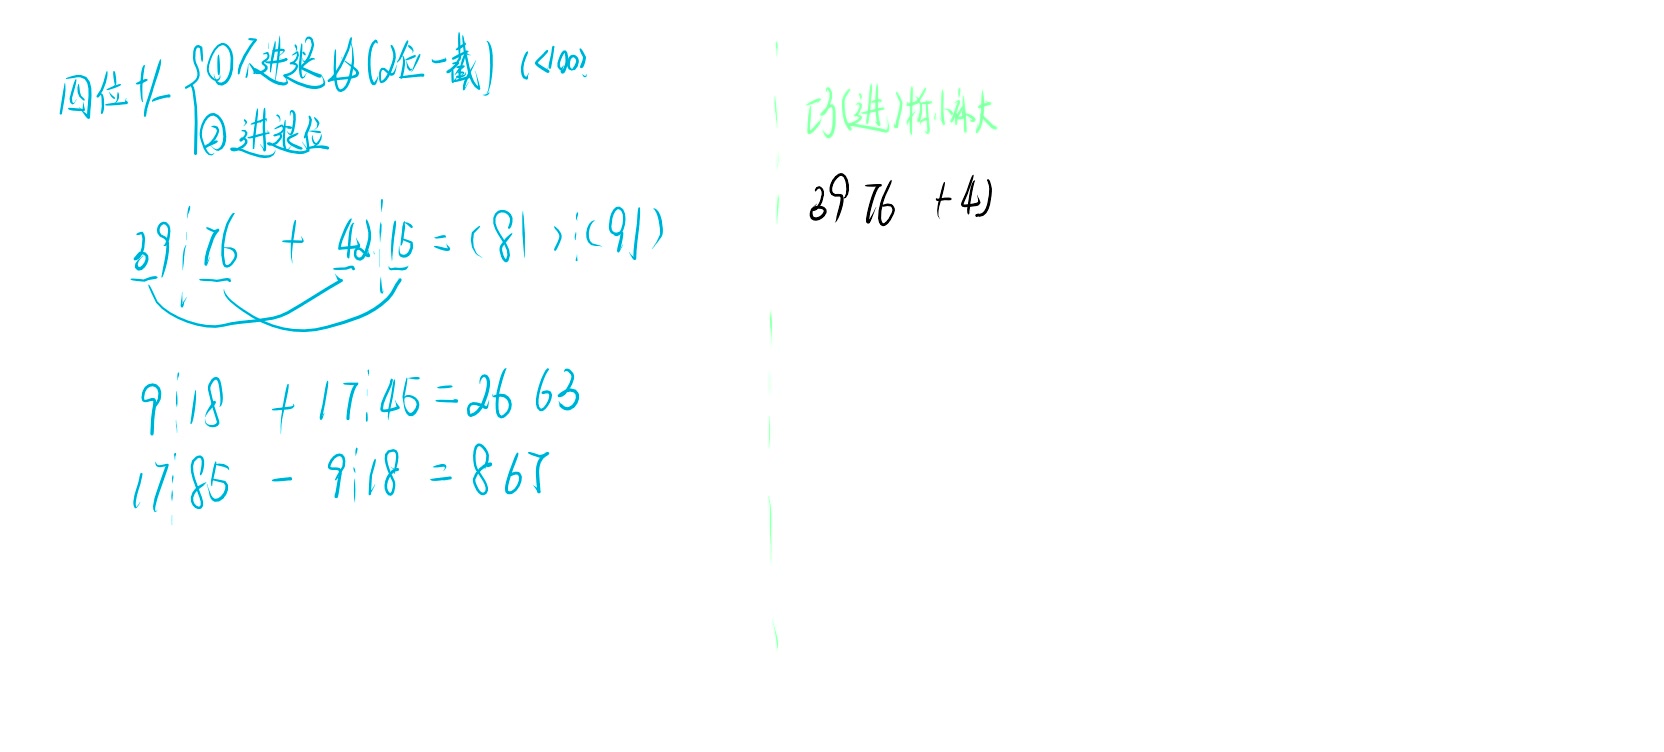 四位 +/-
①不进退位(2位一截) (<100)
②进退位
39 76 + 42 15 = (81) (91)
9 18 + 17 45 = 26 63
17 85 - 9 18 = 8 67
巧(进)拆小补大
39 76 + 42